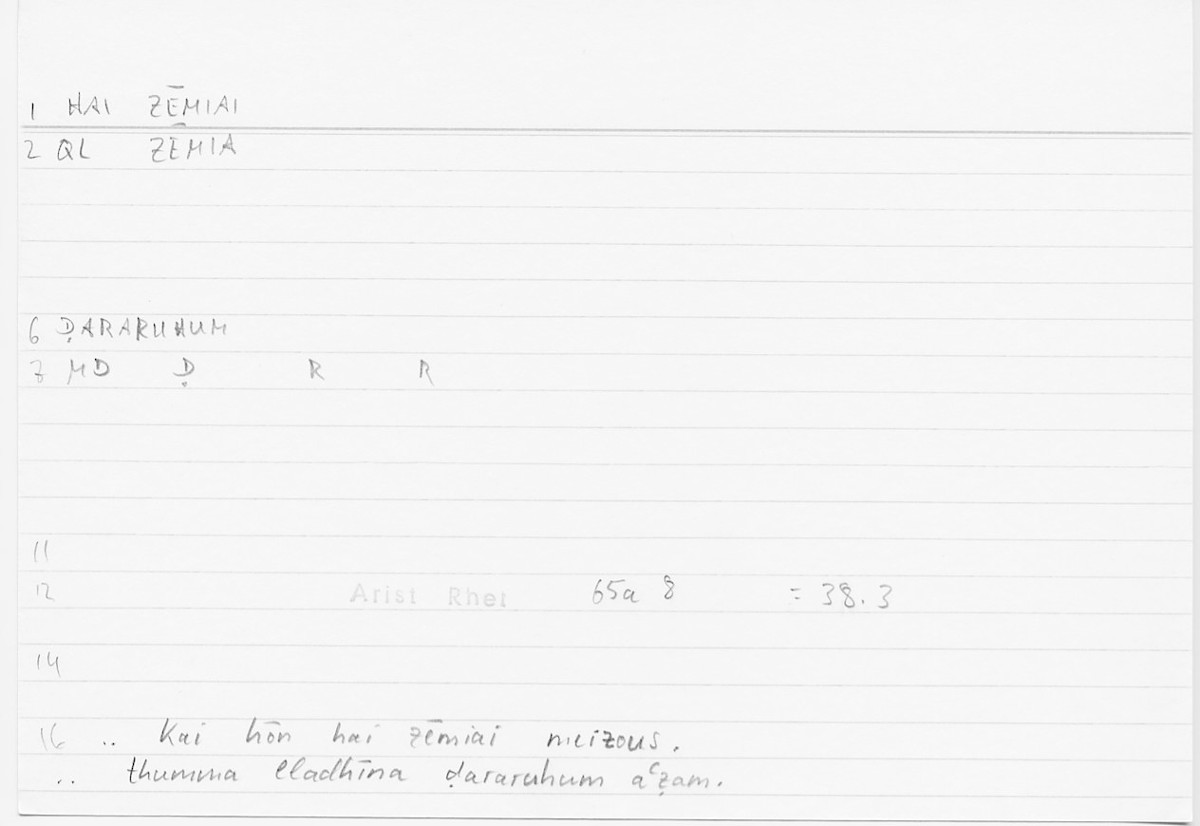 1 HAI ZĒMIAI
2 QL ZĒMIA
6 ḌARARUHUM
7 MD Ḍ R R
11
12 Arist Rhet 65a 8 = 38.3
14
16 .. Kai hōn hai zēmiai meizous.
.. thumma lladhīna ḍararuhum aʿẓam.